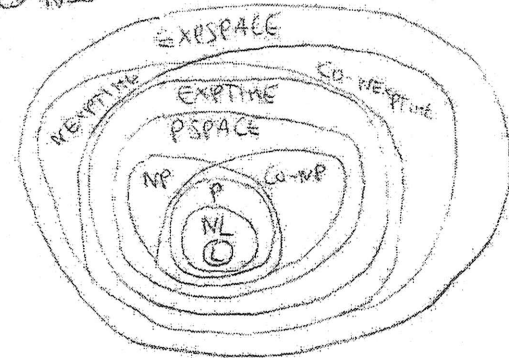 EXPSPACE
NEXPTIME
CO-NEXPTIME
EXPTIME
PSPACE
NP
CO-NP
P
NL
L